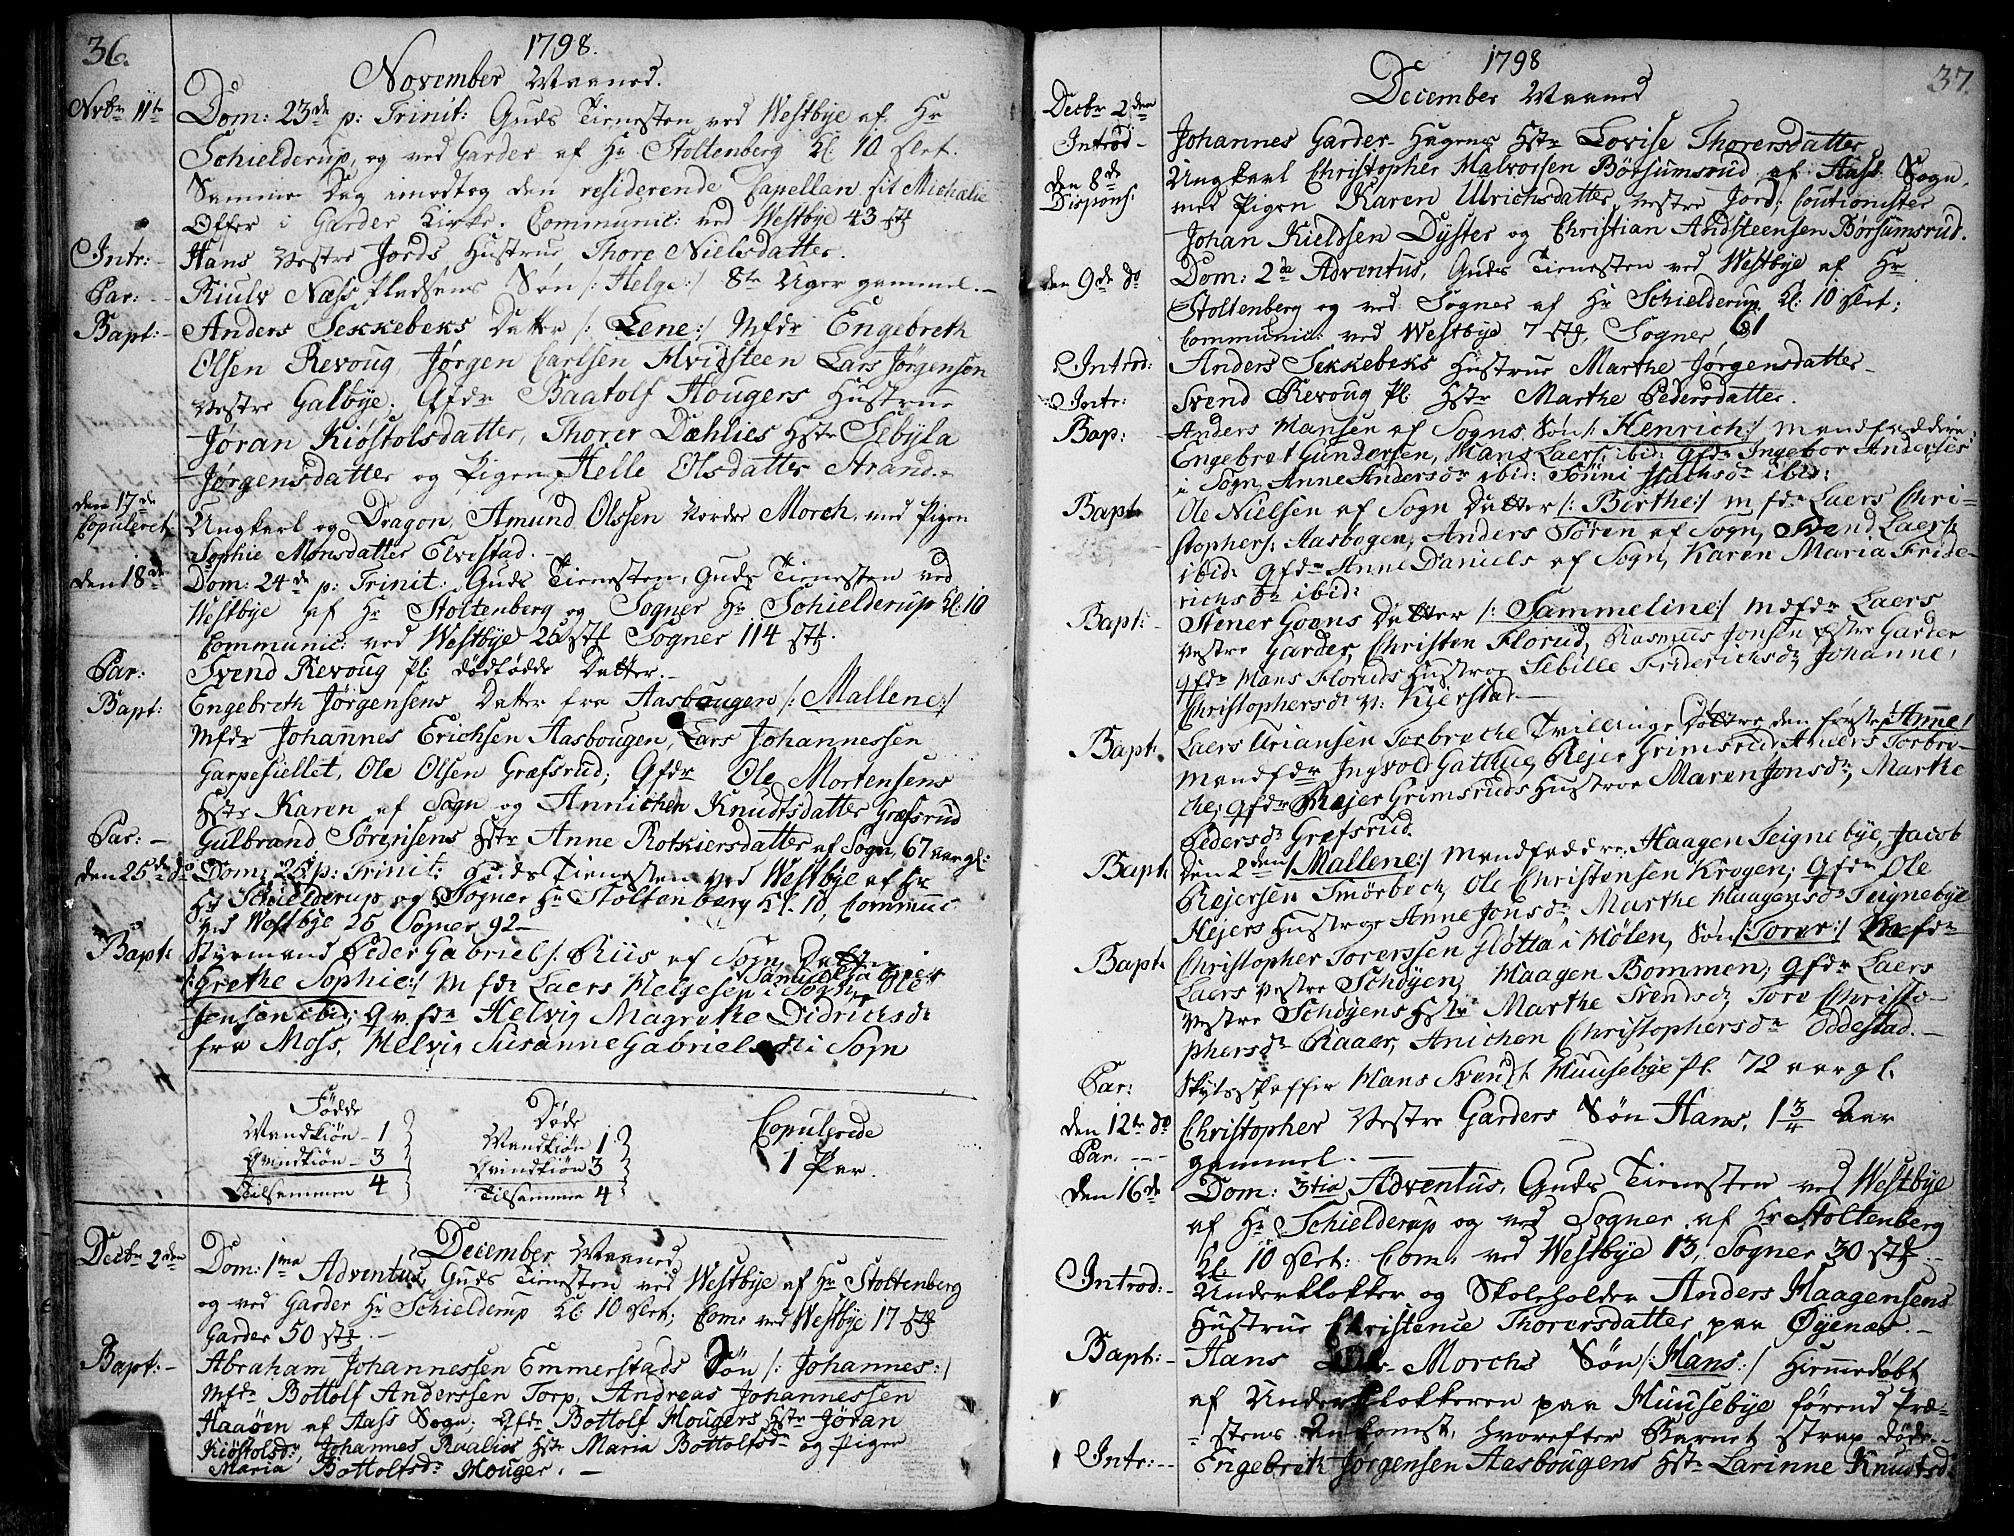 36.
1798.
November Maaned.
Nvbr 11te
Dom: 23de p: Trinit: Guds Tienesten ved Westbye af Hr
Schielderup, og ved Garder af Hr Stoltenberg Kl. 10 slet.
Samme Dag imodtog den residerende Capellan sit Michalie
Offer i Garder Kirke. Communic: ved Westbye 43 stk
Intr: - Hans Vestre Jords Hustrue Thore Nielsdatter.
Par: - Kiulv Næss Pladsens Søn /: Helge :/ 8te Uger gammel. -
Bapt: - Anders Sekkebeks Datter /: Lene :/ Mfdr Engebreth
Olsen Revoug, Jørgen Carlsen Hvidsteen Lars Jørgensen
Vestre Galbye; Qfdr Baatolf Hougers Hustrue
Jøran Kiøstolsdatter, Thorer Dæhlies Hstr Sebyla
Jørgensdatter og Pigen Helle Olsdatter Strand. -
den 17de
Copuleret
Ungkarl og Dragon, Amund Olssen Nordre Morch, med Pigen
Sophie Monsdatter Elvestad. -
den 18de
Dom: 24de p: Trinit: Guds Tienesten, Guds Tienesten ved
Westbye af Hr Stoltenberg og Sogner Hr Schielderup Kl: 10
Communic: ved Westbye 25 stk Sogner 114 stk.
Par: Svend Revoug Pl: dødfødde Datter. -
Bapt: Engebreth Jørgensens Datter fra Aasbougen /: Mallene :/
Mfdr Johannes Erichsen Aasbougen, Lars Johannessen
Garpefiellet, Ole Olsen Græfsrud; Qfdr Ole Mortensens
Hstr Karen af Sogn og Annichen Knudtsdatter Græfsrud
Par: - Gulbrand Sørensens Hstr Anne Rotkiersdatter af Sogn, 67 aar gl:
den 25de do Dom: 25 p: Trinit: Guds Tienesten ved Westbye af Hr
Hr Schielderup og Sogner Hr Stoltenberg Kl. 10, Commun:
ved Westbye 26 Sogner 92 -
Bapt: Styrmand Peder Gabriels: Riis af Sogn Datter
/: Grethe Sophie :/ Mfdr Laers Helgesen i Sogn, Ole
Jensen ibid; Qvfdr Helvig Magrethe Didrichsdr
fra Moss, Helvig Susanne Gabrielsdr i Sogn
Fødde
Mandkiøn - 1
Qvindkiøn - 3
Tilsammen 4
Døde
Mandkiøn 1
Qvindkiøn 3
Tilsammen 4
Copulerede
1 Par.
December Maaned
Decbr 2den
Dom: 1ma Adventus, Guds Tienesten ved Westbye af Hr Stoltenberg
og ved Garder Hr Schielderup Kl: 10 slet; Com: ved Westbye 17 stk
Garder 50 stk. -
Bapt: - Abraham Johannessen Emmerstads Søn /: Johannes :/
Mfdr Bottolf Anderssen Torp, Andreas Johannessen
Haaøen af Aass Sogn; Qfdr Bottolf Hougers Hstr Jøran
Kiøstolsdr, Johannes Raalios Hstr Maria Bottolfsdr og Pigen
Maria Bottolfsdr Houger. -
1798
37.
December Maaned
Decbr 2den
Introd - Johannes Garder Hagens Hstr Lovise Thorersdatter
den 8de
Dispens: Ungkarl Christopher Halvorsen Børsumsrud af Aass Sogn,
med Pigen Karen Ulrichsdatter, Vestre Jord; Cautionister
Johan Kieldsen Dyster og Christian Andsteensen Børsumsrud.
den 9de do Dom: 2da Adventus, Guds Tienesten ved Westbye af Hr
Stoltenberg og ved Sogner af Hr Schielderup Kl: 10 slet;
Communic: ved Westbye 7 stk, Sogner 61
Introd: Anders Sekkebeks Hustrue Marthe Jørgensdatter -
Intr: Svend Revoug Pl: Hstr Marthe Pedersdatter.
Bap: Anders Hansen af Sogns Søn /: Henrich :/ Mandfaddere
Engebret Gundersen, Hans Laers: ibid: Qfdr Ingebor Andersdr
i Sogn, Anne Andersdr ibid: Sønni Isachsdr ibid:
Bapt Ole Nielsen af Sogn Datter /: Birthe :/ Mfdr Laers Chri-
stophers: Aasbogen, Anders Søren af Sogn, Svend Laers:
ibid: Qfdr Anne Daniels af Sogn, Karen Maria Fride-
richsdr ibid:
Bapt: Stener Goens Datter /: Sammeline :/ Mdfdr Laers
Vestre Garder, Christen Florud, Rasmus Jonsen Vestre Garder
qfdr Hans Floruds Hustroe Sebille Friderichsdr, Johanne
Christophersdr N: Kjerstad. -
Bapt. Laers Uriansen Torbrethe Tvillinge Døttre, den første /: Anne :/
Mandfdr Ingvold Gatthue, Rejer Grimsrud, Anders Torbre-
the; Qfdr Rejer Grimsruds Hustroe Maren Jonsdr, Marthe
Pedersdr Græfsrud.
Bapt. Den 2den /: Mallene :/ Mandfaddere, Haagen Teignebye, Jacob
Rejersen Smørbech, Ole Christensen Krogen; Qfdr Ole
Hejers Hustroe Anne Jonsdr, Marthe Haagensdr Teignebye
Bapt Christopher Torerssen Sløtta i Hølen, Søn /: Torer :/ Mfdr
Laers Vestre Schøyen, Haagen Bommen; Qfdr Laers
Vestre Schøyens Hstr Marthe Svendsdr, Tore Christo-
phersdr Raaer, Anichen Christophersdr Oddestad. -
Par: Skydsskaffer Hans Svends: Huusebye pl. 72 aar gl.
den 12te do
Par: - - Christopher Vestre Garders Søn Hans, 1 3/4 Aar
gammel. -
den 16de Dom: 3tia Adventus, Guds Tienesten ved Westbye
af Hr Schielderup og ved Sogner af Hr Stoltenberg
Kl: 10 slet: Com: ved Westbye 13, Sogner 30 stk -
Introd: - Underklokker og Skoleholder Anders Haagensens
Hustrue Christence Thorersdatter paa Øyenas. -
Bapt: - Hans Morchs Søn /: Hans :/ Hiemmedøbt
af Underklokkeren paa Huusebye førend Præ-
stens Ankomst, hvorefter Barnet strax døde. -
Intr: - Engebreth Jørgensen Aasbougens Hstr Larinne Knudtsdr